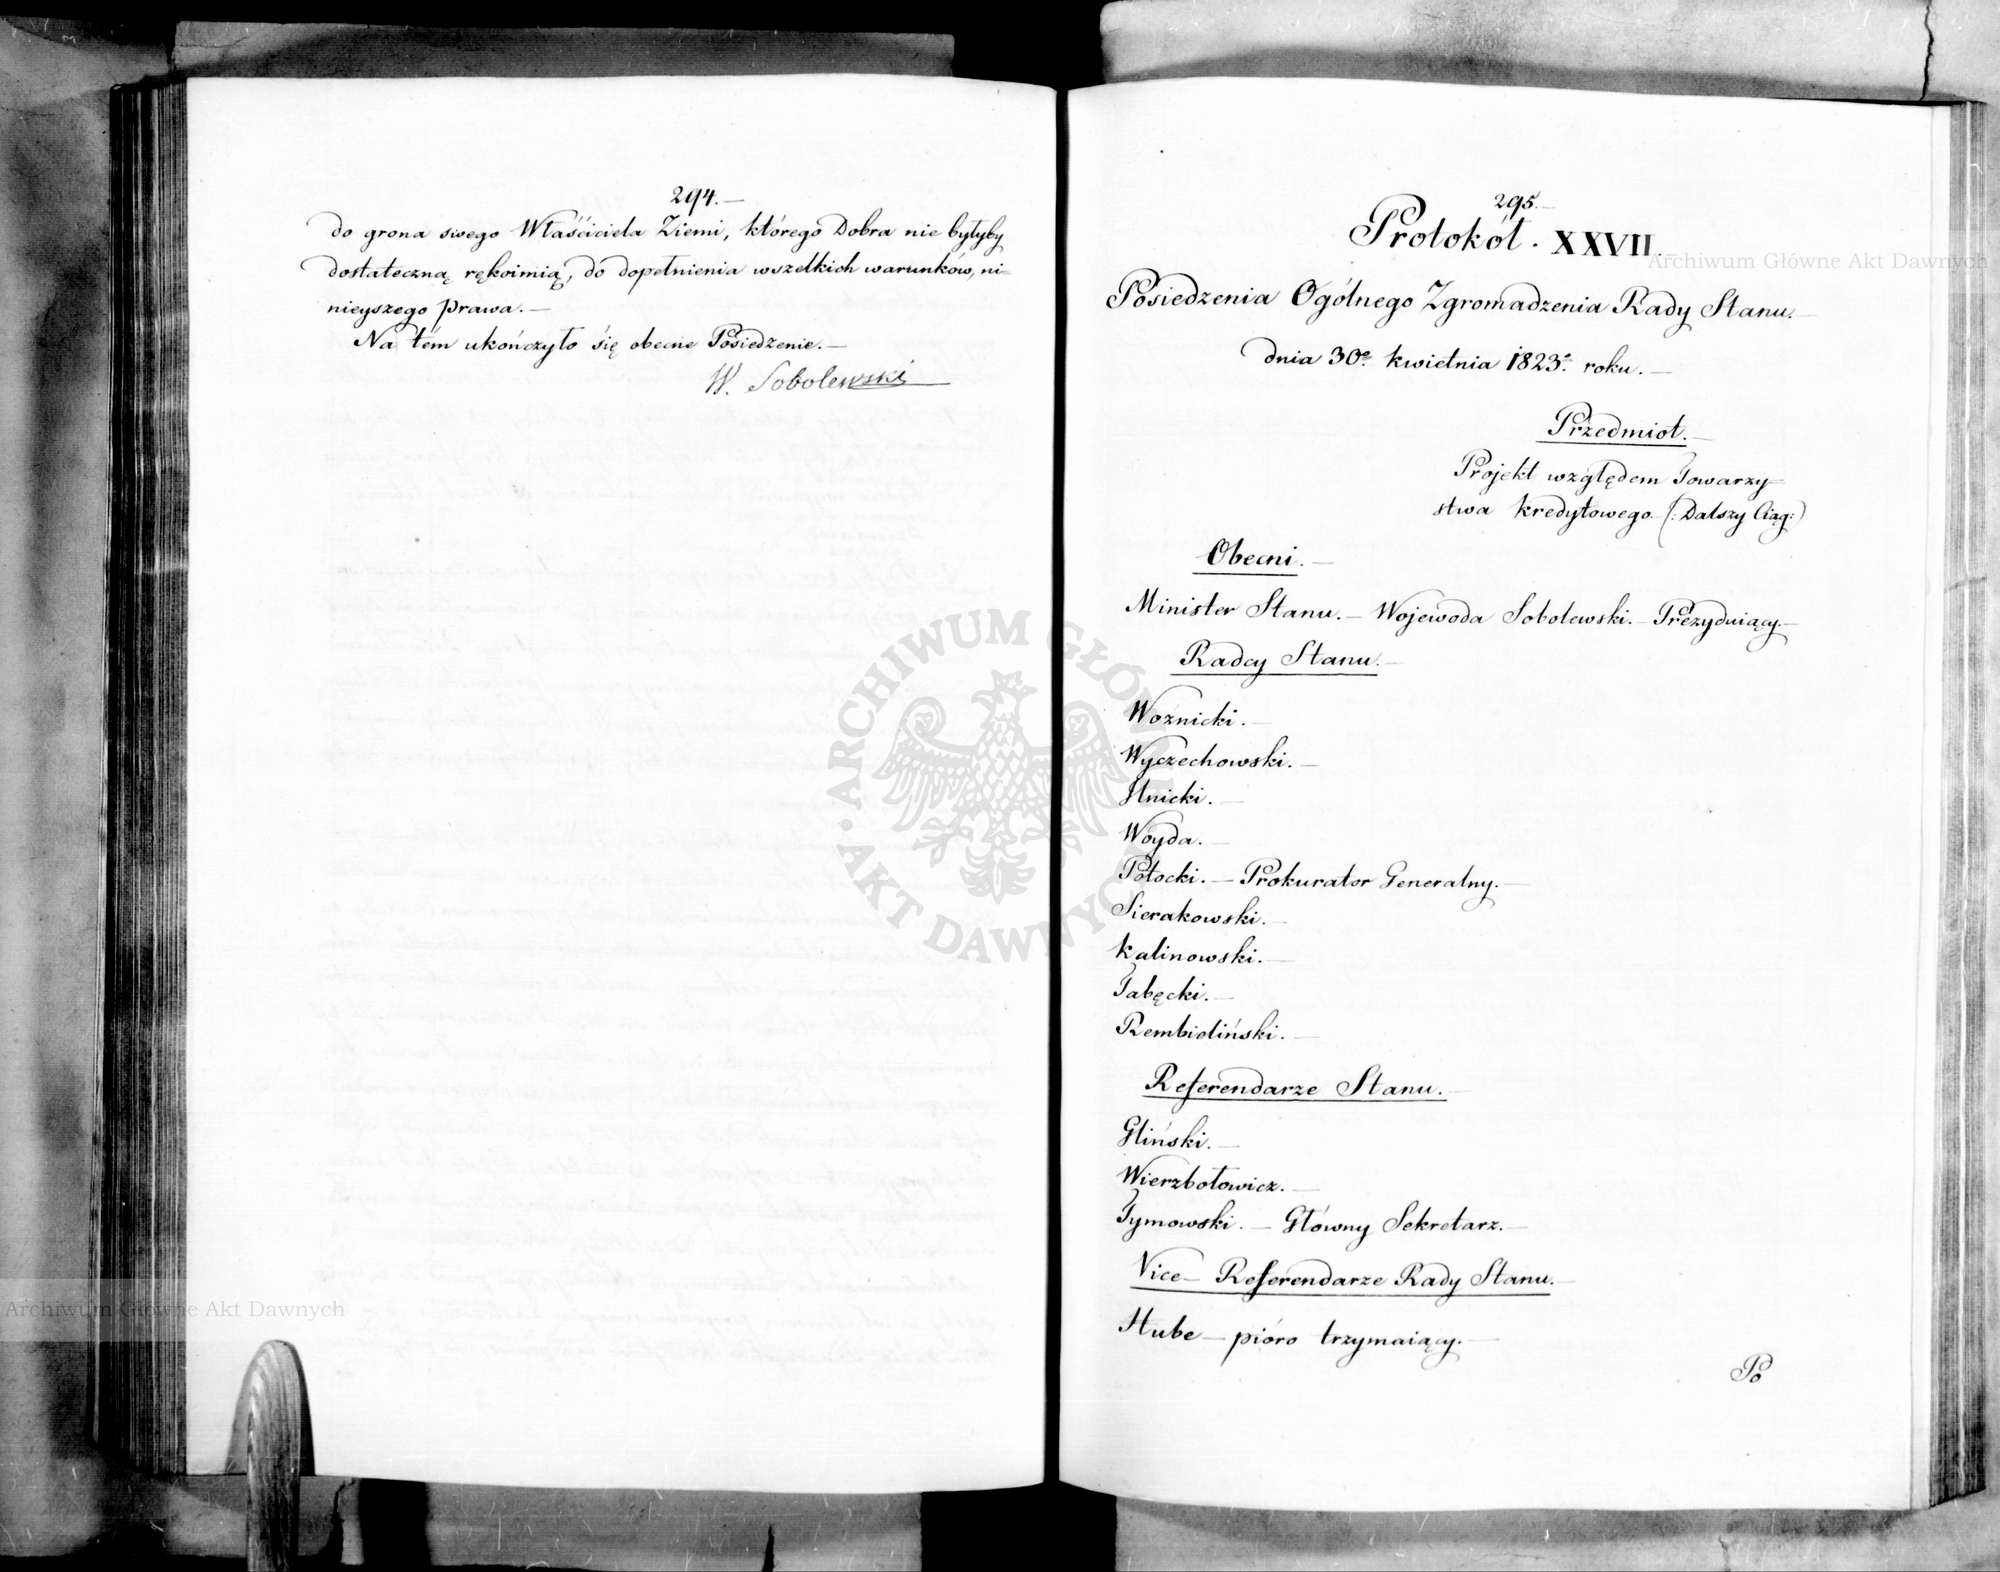 294.—
do grona swego Właściciela Ziemi, którego Dobra nie byłyby
dostateczną rękoimią, do dopełnienia wszelkich warunków, ni=
nieyszego prawa.—
Na tém ukończyło się obecne Posiedzenie.—
W. Sobolewski
295.—
Protokół. XXVII.—
Posiedzenia Ogólnego Zgromadzenia Rady Stanu.—
dnia 30º kwietnia 1823º roku.—
Przedmiot.—
Projekt względem Towarzy=
stwa kredytowego (: Dalszy Ciąg :)
Obecni.—
Minister Stanu.— Wojewoda Sobolewski.— Prezyduiący.—
Radcy Stanu.—
Woźnicki.—
Wyczechowski.—
Ilnicki.—
Woyda.—
Potocki.— Prokurator Generalny.—
Sierakowski.—
Kalinowski.—
Tabęcki.—
Rembieliński.—
Referendarze Stanu.—
Gliński.—
Wierzbołowicz.—
Tymowski.— Główny Sekretarz.—
Vice— Referendarze Rady Stanu.—
Hube— pióro trzymaiący.—
Po
ARCHIWUM GŁÓWNE AKT DAWNYCH
Archiwum Główne Akt Dawnych
Archiwum Główne Akt Dawnych